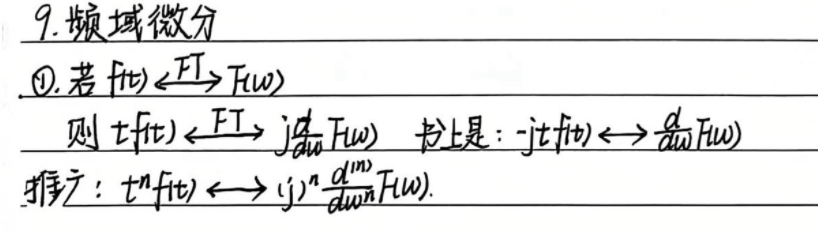 9.频域微分
①.若 f(t) ←FT→ F(ω)
则 tf(t) ←FT→ j d/dω F(ω) 书上是：-jtf(t) ←→ d/dω F(ω)
推广：tⁿf(t) ←→ (j)ⁿ d⁽ⁿ⁾/dωⁿ F(ω).